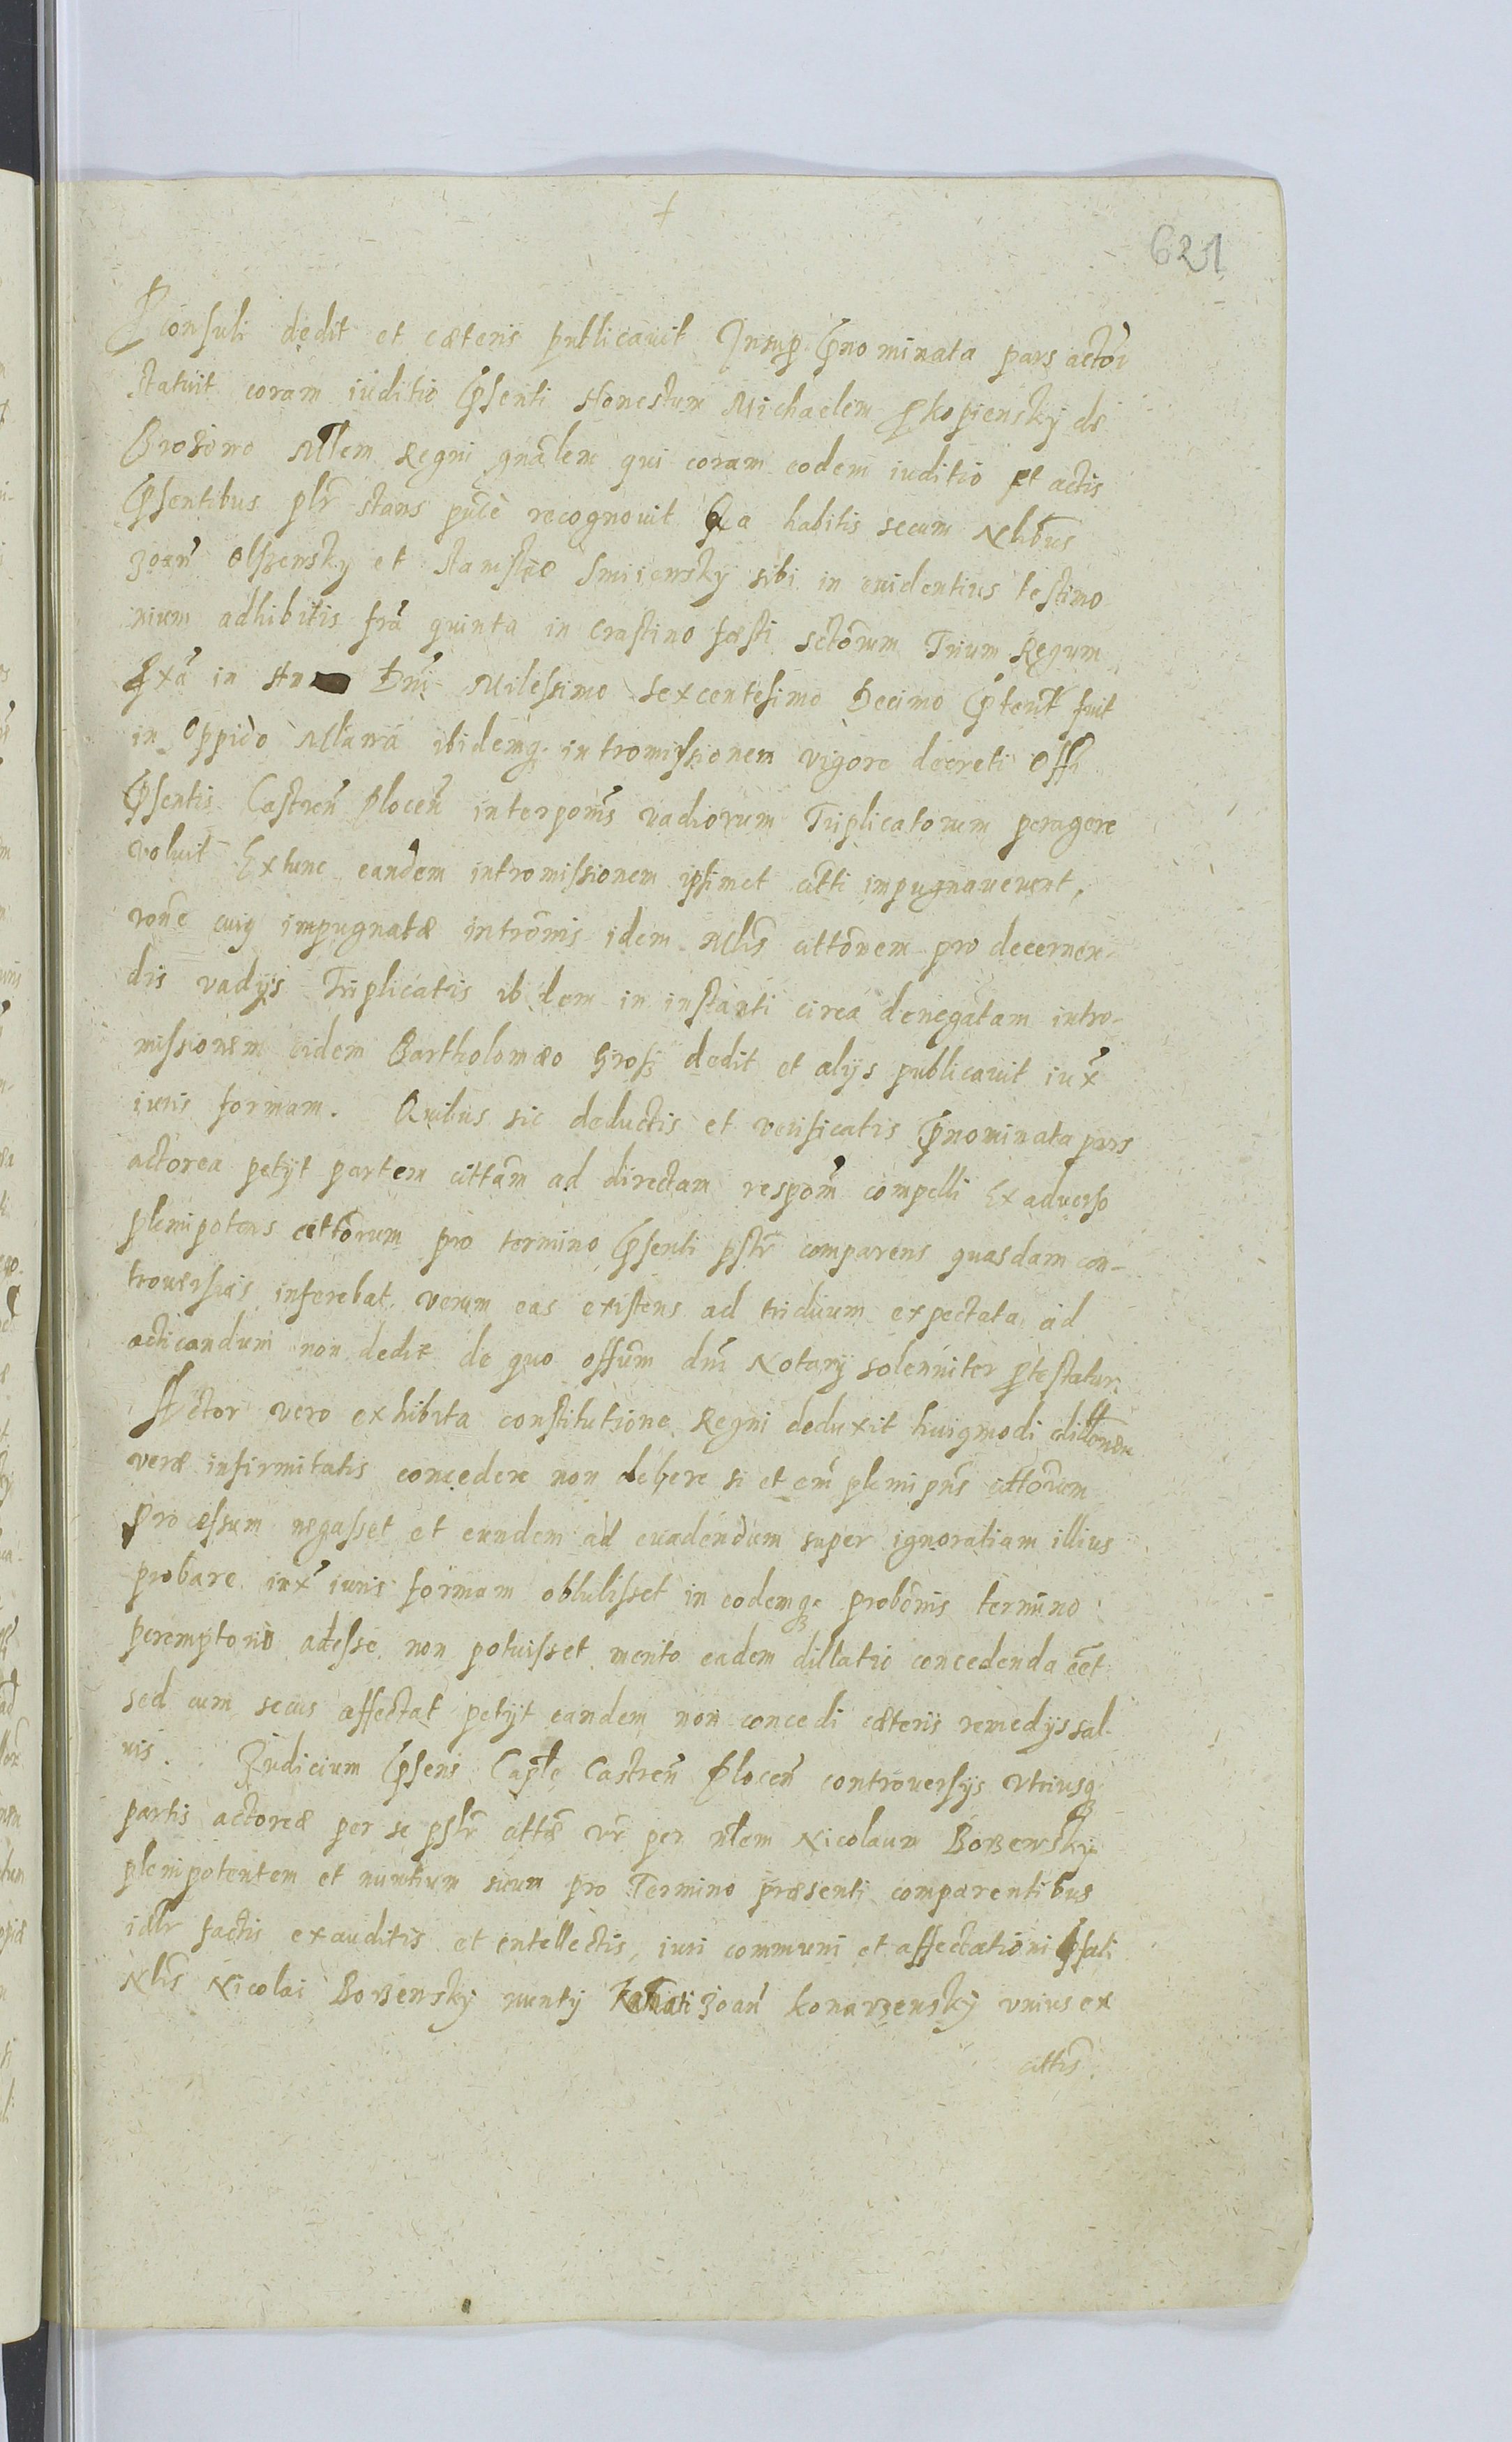 621
Pconsuli dedit et cæteris publicauit Insup pnominata pars actor
statuit coram iuditio psenti Honestum Michaelem Pkopiensky de
Brosino Mlem Regni gnalem qui coram eodem iuditio et actis
psentibus plr stans pude recognouit Qa habitis secum Nlibus
Joan Olszensky et Stanislao Smiiensky sibi in euidentius testimo
nium adhibitis fra quinta in Crastino fæsti Sctorum Trium Regum
pxa in An Dni Milessimo Sexcentesimo Decimo pterit fuit
in Oppido Mlawa ibidemq intromissionem vigore decreti Offi
psentis Castren Plocen interponis vadiorum Triplicatorum peragere
voluit Extunc eandem intromissionem ipsimet citti impugnauerunt,
rone cuiq impugnatæ intromis idem Mlis cittonem pro decernen-
dis vadijs Triplicatis ibidem in instanti circa denegatam intro-
missionem eidem Bartholomæo dedit et alijs publicauit iux
iuris formam. Quibus sic deductis et verificatis pnominata pars
actorea petijt partem cittam ad directam respom compelli Ex aduerso
plenipotens cittorum pro termino psenti pslr comparens quasdam con-
trouersias inferebat verum eas existens ad triduum expectata ad
acticandum non dedit de quo offum dni Notarij solenniter ptestatur.
Actor vero exhibita constitutione Regni deduxit huiqmodi dillonem
veræ infirmitatis concedere non debere si et em plenipns cittorum
Processum negasset et eundem ad euadendum super ignoratiam illius
probare iux iuris formam obtulisset in eodemq probonis termino
peremptorio adesse non potuisset merito eadem dillatio concedenda eet
sed cum secus affectat petijt eandem non concedi cæteris remedijs sal
uis. Judicium psens Caple Castren Plocen controuersijs Vtriusq
partis actoreæ per se pslr cittæ vr per Nlem Nicolaum Borzensky
plenipotentem et nuntium suum pro Termino præsenti comparentibus
idlr factis exauditis et intellectis, iuri communi et affectationi pfati
Nlis Nicolai Borzensky nuntij Joan Konarzensky vnius ex
cittis.